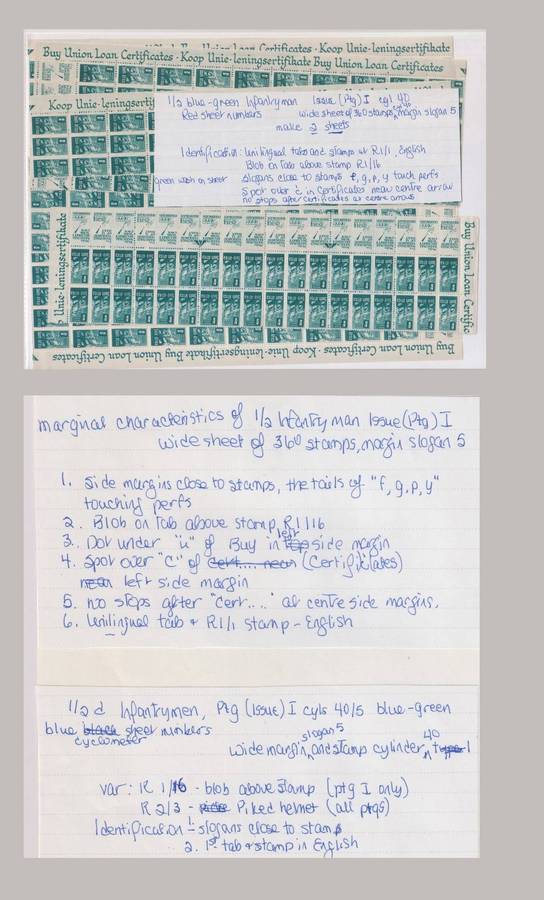 Buy Union Loan Certificates · Koop Unie-leningsertifikate
Buy Union Loan Certificates · Koop Unie-leningsertifikate Buy Union Loan Certificates
Koop Unie-leningsertif
1/2 blue-green Infantryman Issue (Ptg) I cyl 40
Red sheet numbers wide sheet of 360 stamps, margin slogan 5
make 2 sheets
Identification: Unilingual tabs and stamps at R1/1, English
Blob on Tab above stamp R1/16
green wash on sheet slogans close to stamps f, g, p, y touch perfs
Spot over 'c' in Certificates near centre arrow
no stops after certificates at centre arrows
Unie-leningsertifikate
Buy Union Loan Certific
Buy Union Loan Certificates · Koop Unie-leningsertifikate Buy Union Loan Certificates
marginal characteristics of 1/2 Infantryman Issue (Ptg) I
wide sheet of 360 stamps, margin slogan 5
1. Side margins close to stamps, the tails of "f, g, p, y"
touching perfs
2. Blob on Tab above stamp, R1/16
3. Dot under "u" of Buy in left side margin
4. Spot over "C" of cert.... near (Certificates)
near left side margin
5. no stops after "cert...." at centre side margins.
6. Unilingual tab & R1/1 stamp - English
1/2 d Infantrymen, Ptg (Issue) I cyls 40/5 blue-green
blue black sheet numbers
cyclometer
wide margin, slogan 5 and stamp cylinder 40
var: R 1/16 - blob above stamp (ptg I only)
R 2/3 - Piked helmet (all ptgs)
Identification 1. - slogans close to stamp
2. 1st tab & stamp in English